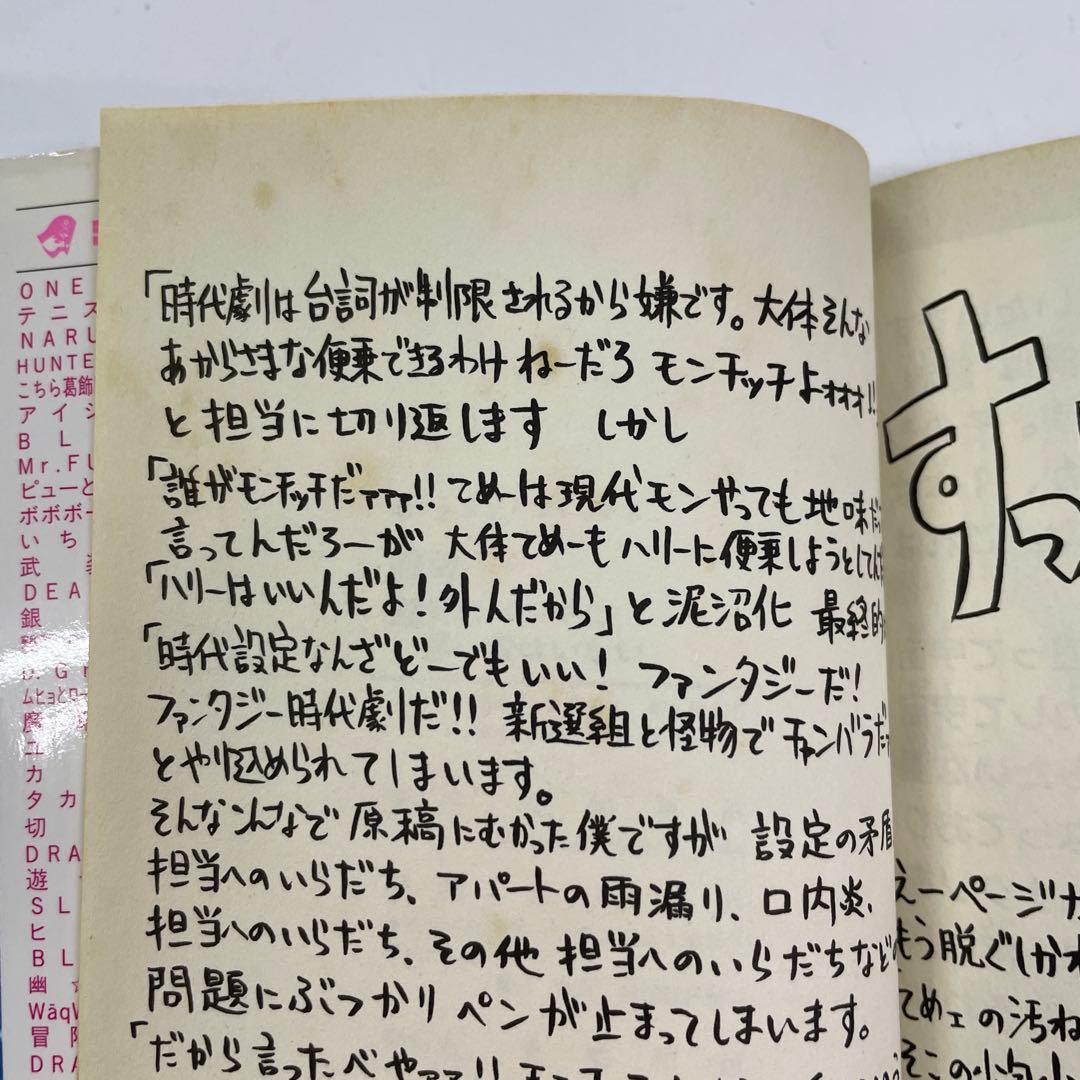 ONE
テニス
NARU
HUNTE
こちら葛飾
アイシ
BL
Mr.FU
ピューと
ボボボー
いち
武
DEA
銀
D.Gr
ムヒョとロー
魔
ユ
カ
タカ
切
DRA
遊
SL
ヒ
BL
幽☆
WāqW
冒険
DRA
「時代劇は台詞が制限されるから嫌です。大体そんな
あからさまな便乗できるわけねーだろ モンチッチよォォォ!!
と担当に切り返します しかし
「誰がモンチッチだァァァ!! てめーは現代モンやっても地味だ
言ってんだろーが 大体てめーもハリーに便乗しようとしてん
「ハリーはいいんだよ!外人だから」と泥沼化 最終的
「時代設定なんざどーでもいい! ファンタジーだ!
ファンタジー時代劇だ!! 新選組と怪物でチャンバラだ
とやり込められてしまいます。
そんなこんなで原稿にむかった僕ですが 設定の矛盾
担当へのいらだち、アパートの雨漏り、口内炎、
担当へのいらだち、その他 担当へのいらだちなどの
問題にぶつかり ペンが止まってしまいます。
「だから言ったべやァァ!!
すっ
えーページナ
もう脱ぐしか
てめェの汚ね
そこの